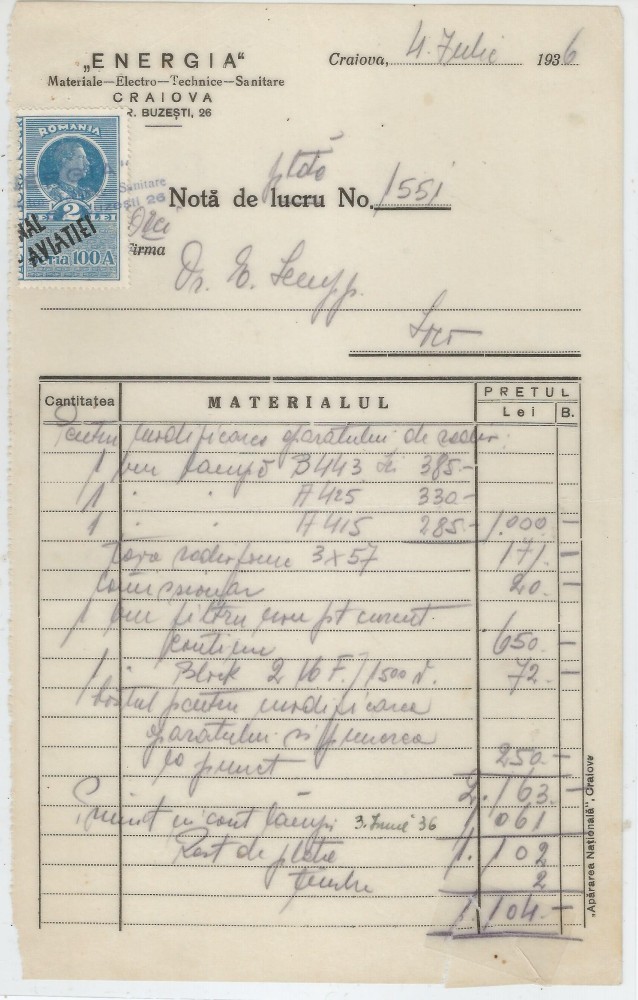 „ENERGIA“
Materiale—Electro—Technice—Sanitare
CRAIOVA
R. BUZEȘTI, 26
Craiova, 4. Iulie 1936
ROMANIA
2 LEI
NAL
AVIATIEI
Seria 100 A
Sanitare
26
Notă de lucru No. 1551
Firma
Dr. E.
Loco
Cantitatea
MATERIALUL
PREȚUL
Lei B.
Pentru modificarea aparatului de radio:
1 buc lampă B443 Lei 385.-
1 " " A425 330.-
1 " " A415 285.- 1.000 —
Taxa radiofonie 3x57 171.—
Comisionar 20.—
1 buc filtru nou pt curent
continu 650.—
1 " Block 2 /1500 V. 72.—
Costul pentru modificarea
aparatului si punerea
la punct 250.—
2.163.—
Primit in cont lampi 3. Iunie 36 1 061
Rest de plata 1.102
timbru 2
1.104.—
„Apărarea Națională“, Craiova